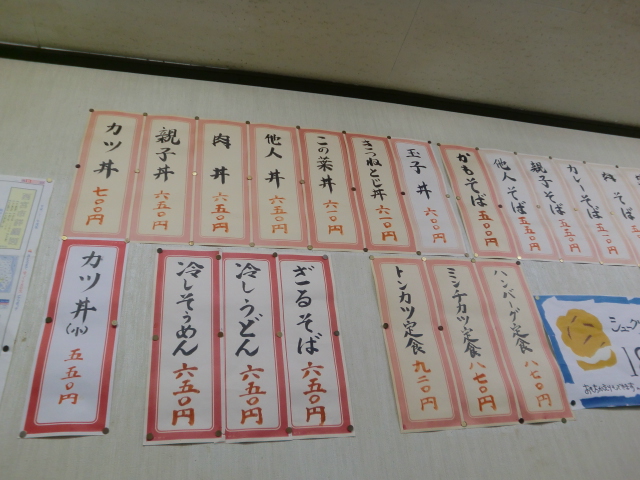 カツ丼 七〇〇円
親子丼 六五〇円
肉丼 六五〇円
他人丼 六五〇円
この菜丼 六一〇円
きつねとじ丼 六一〇円
玉子丼 六〇〇円
かもそば 五〇〇円
他人そば 五五〇円
親子そば 五五〇円
カレーそば 五五〇円
肉そば
カツ丼(小) 五五〇円
冷しそうめん 六五〇円
冷しうどん 六五〇円
ざるそば 六五〇円
トンカツ定食 九二〇円
ミンチカツ定食 八七〇円
ハンバーグ定食 八七〇円
シュー